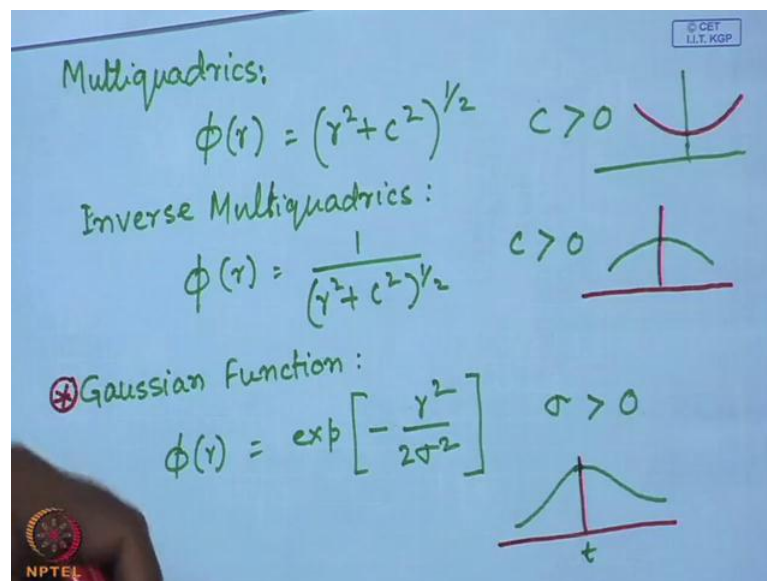 © CET
I.I.T. KGP
Multiquadrics:
φ(r) = (r² + c²)^1/2 c > 0
Inverse Multiquadrics:
φ(r) = 1 / (r² + c²)^1/2 c > 0
* Gaussian Function:
φ(r) = exp [ - r² / 2σ² ] σ > 0
t
NPTEL